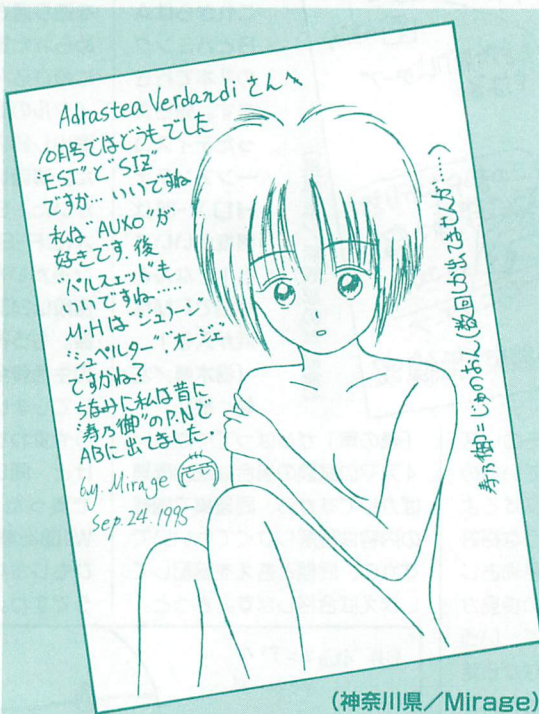 Adrastea Verdandi さんへ
10月号ではどうもでした
"EST"と"SIZ"
ですか… いいですね
私は "AUXO"が
好きです. 後
"ベルスェッド"も
いいですね….
M.Hは"ジュノーン"
"シュペルター" "オージェ"
ですかね?
ちなみに私は昔に
"寿乃御"のP.Nで
ABに出てました.
by. Mirage
Sep. 24. 1995
寿乃御=じゅのおん(数回しか出てませんが……)
(神奈川県/Mirage)